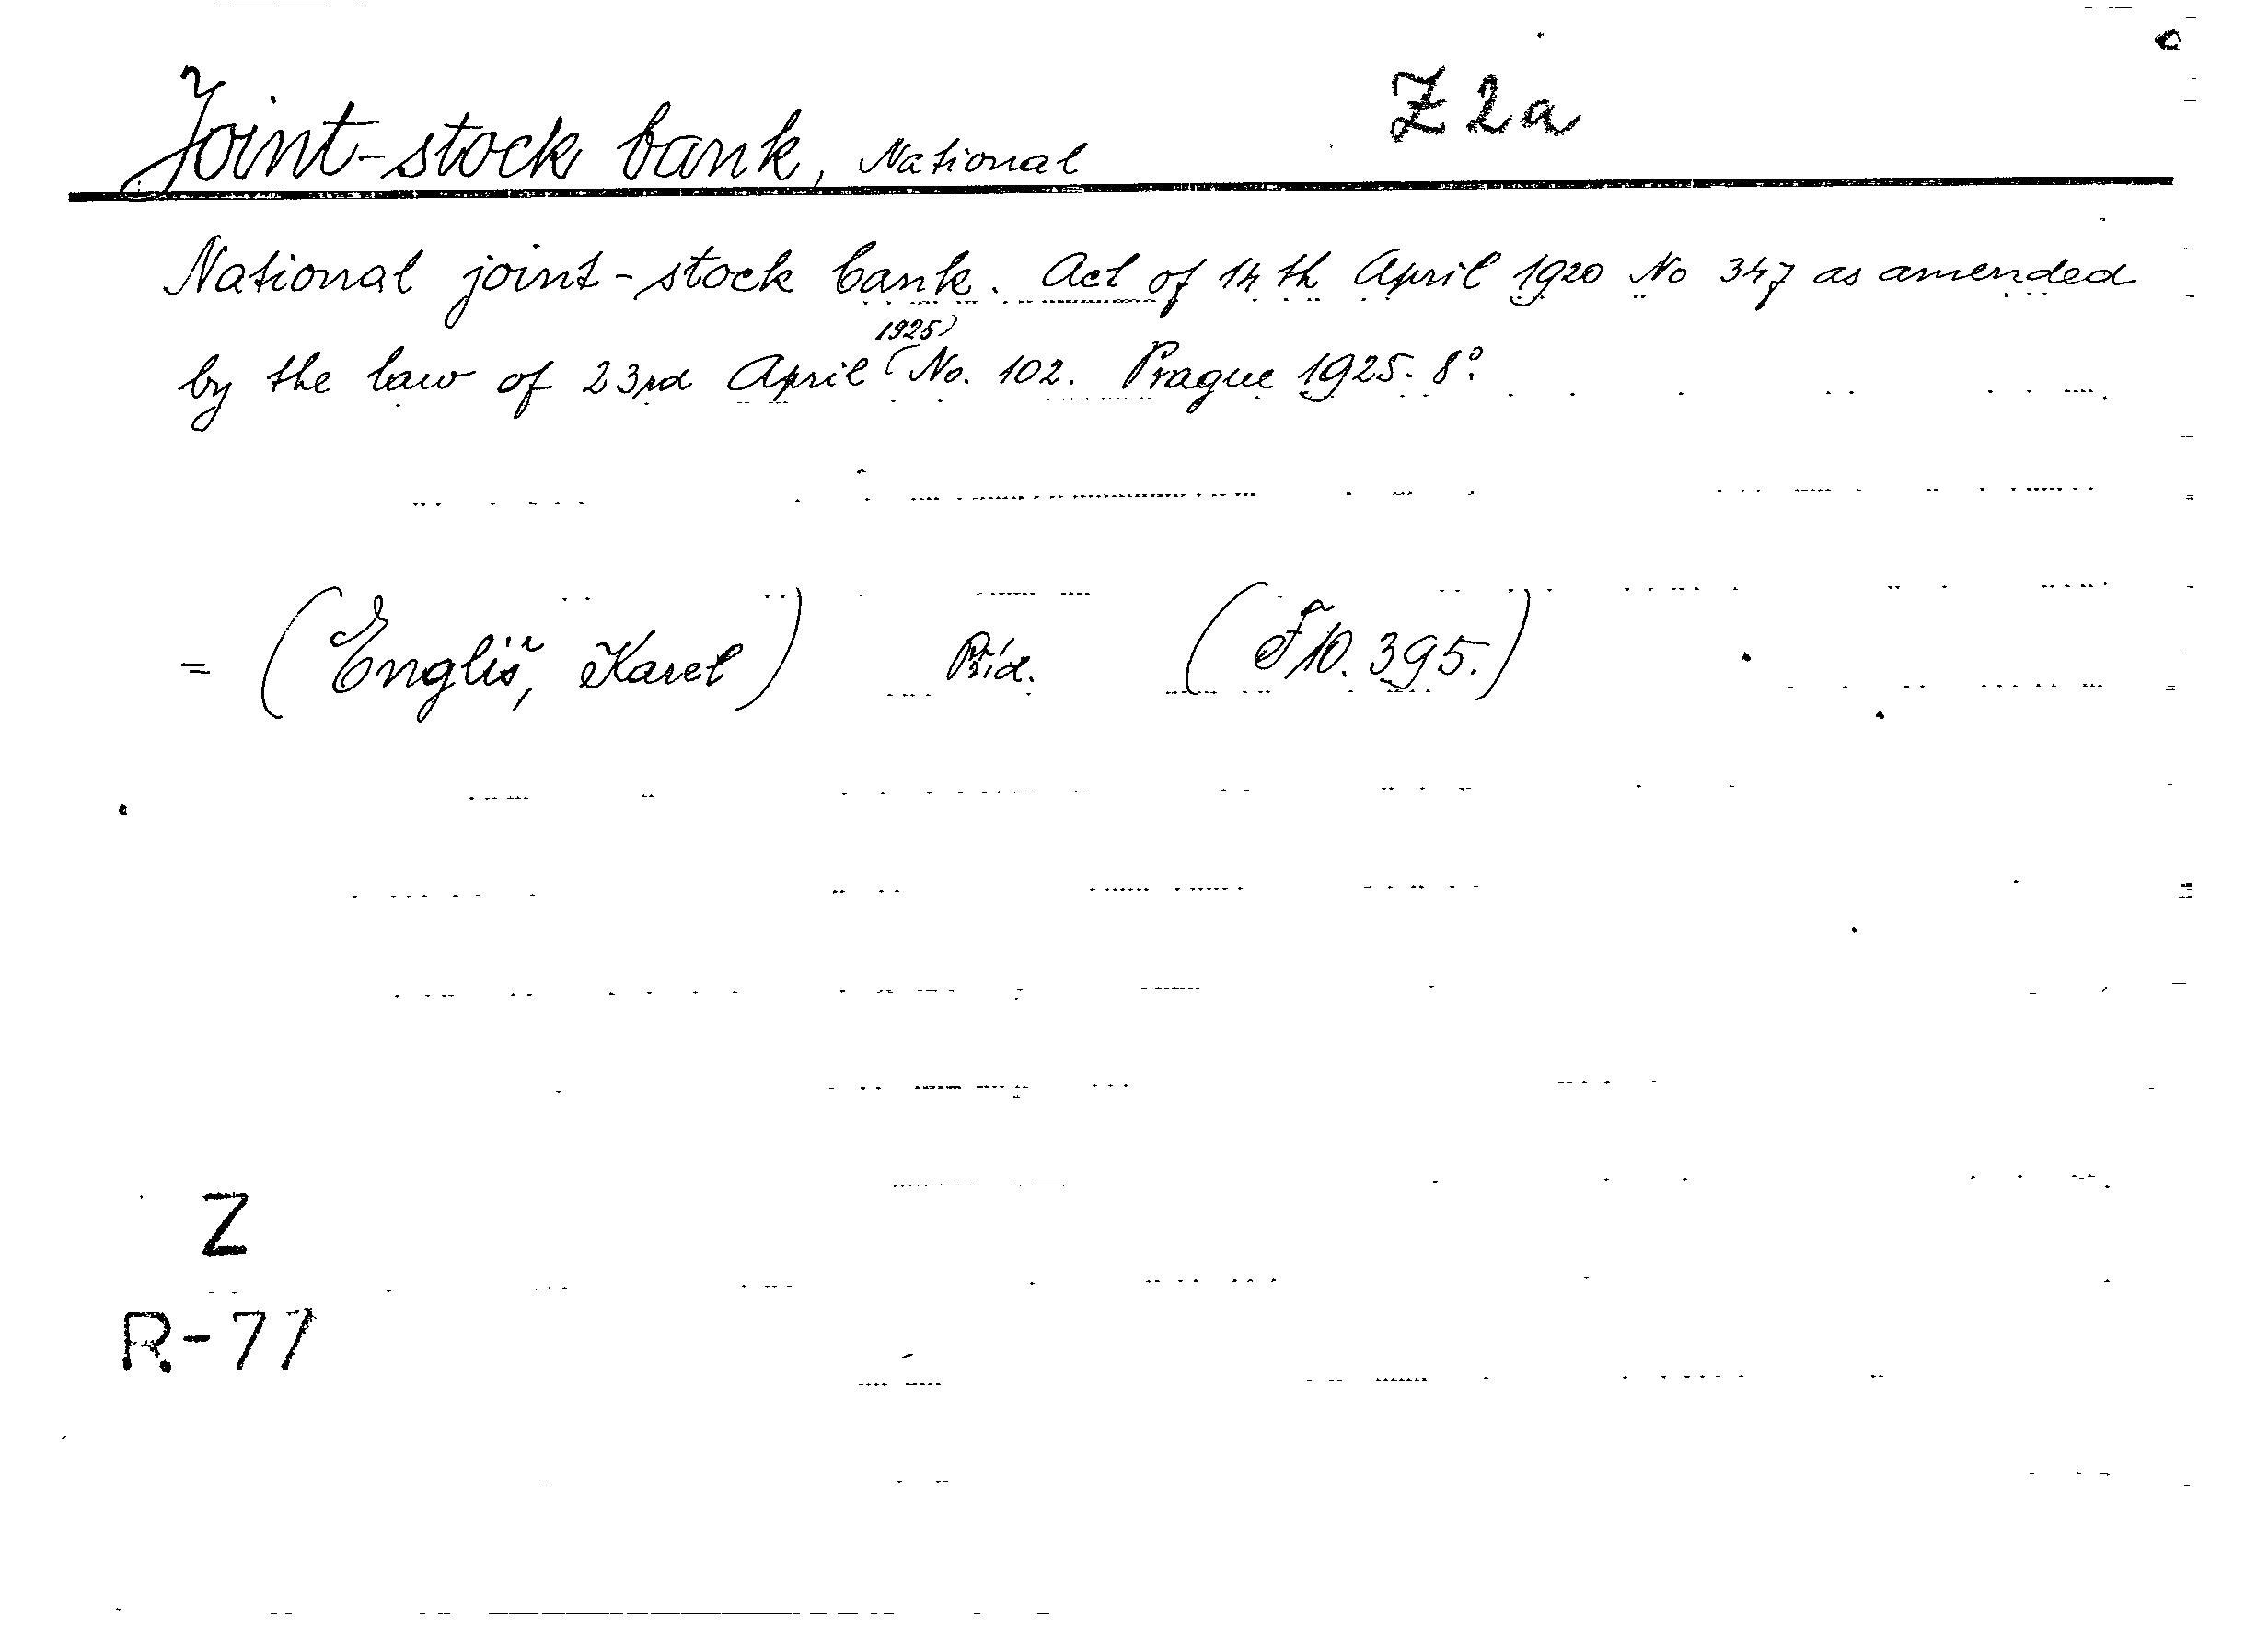 Joint-stock bank, National
Z 2a
National joint-stock bank. Act of 14th April 1920 No 347 as amended
1925)
by the law of 23rd April (No. 102. Prague 1925. 8°.
= (Engliš, Karel) Příd. (F 10.395.)
Z
R-77